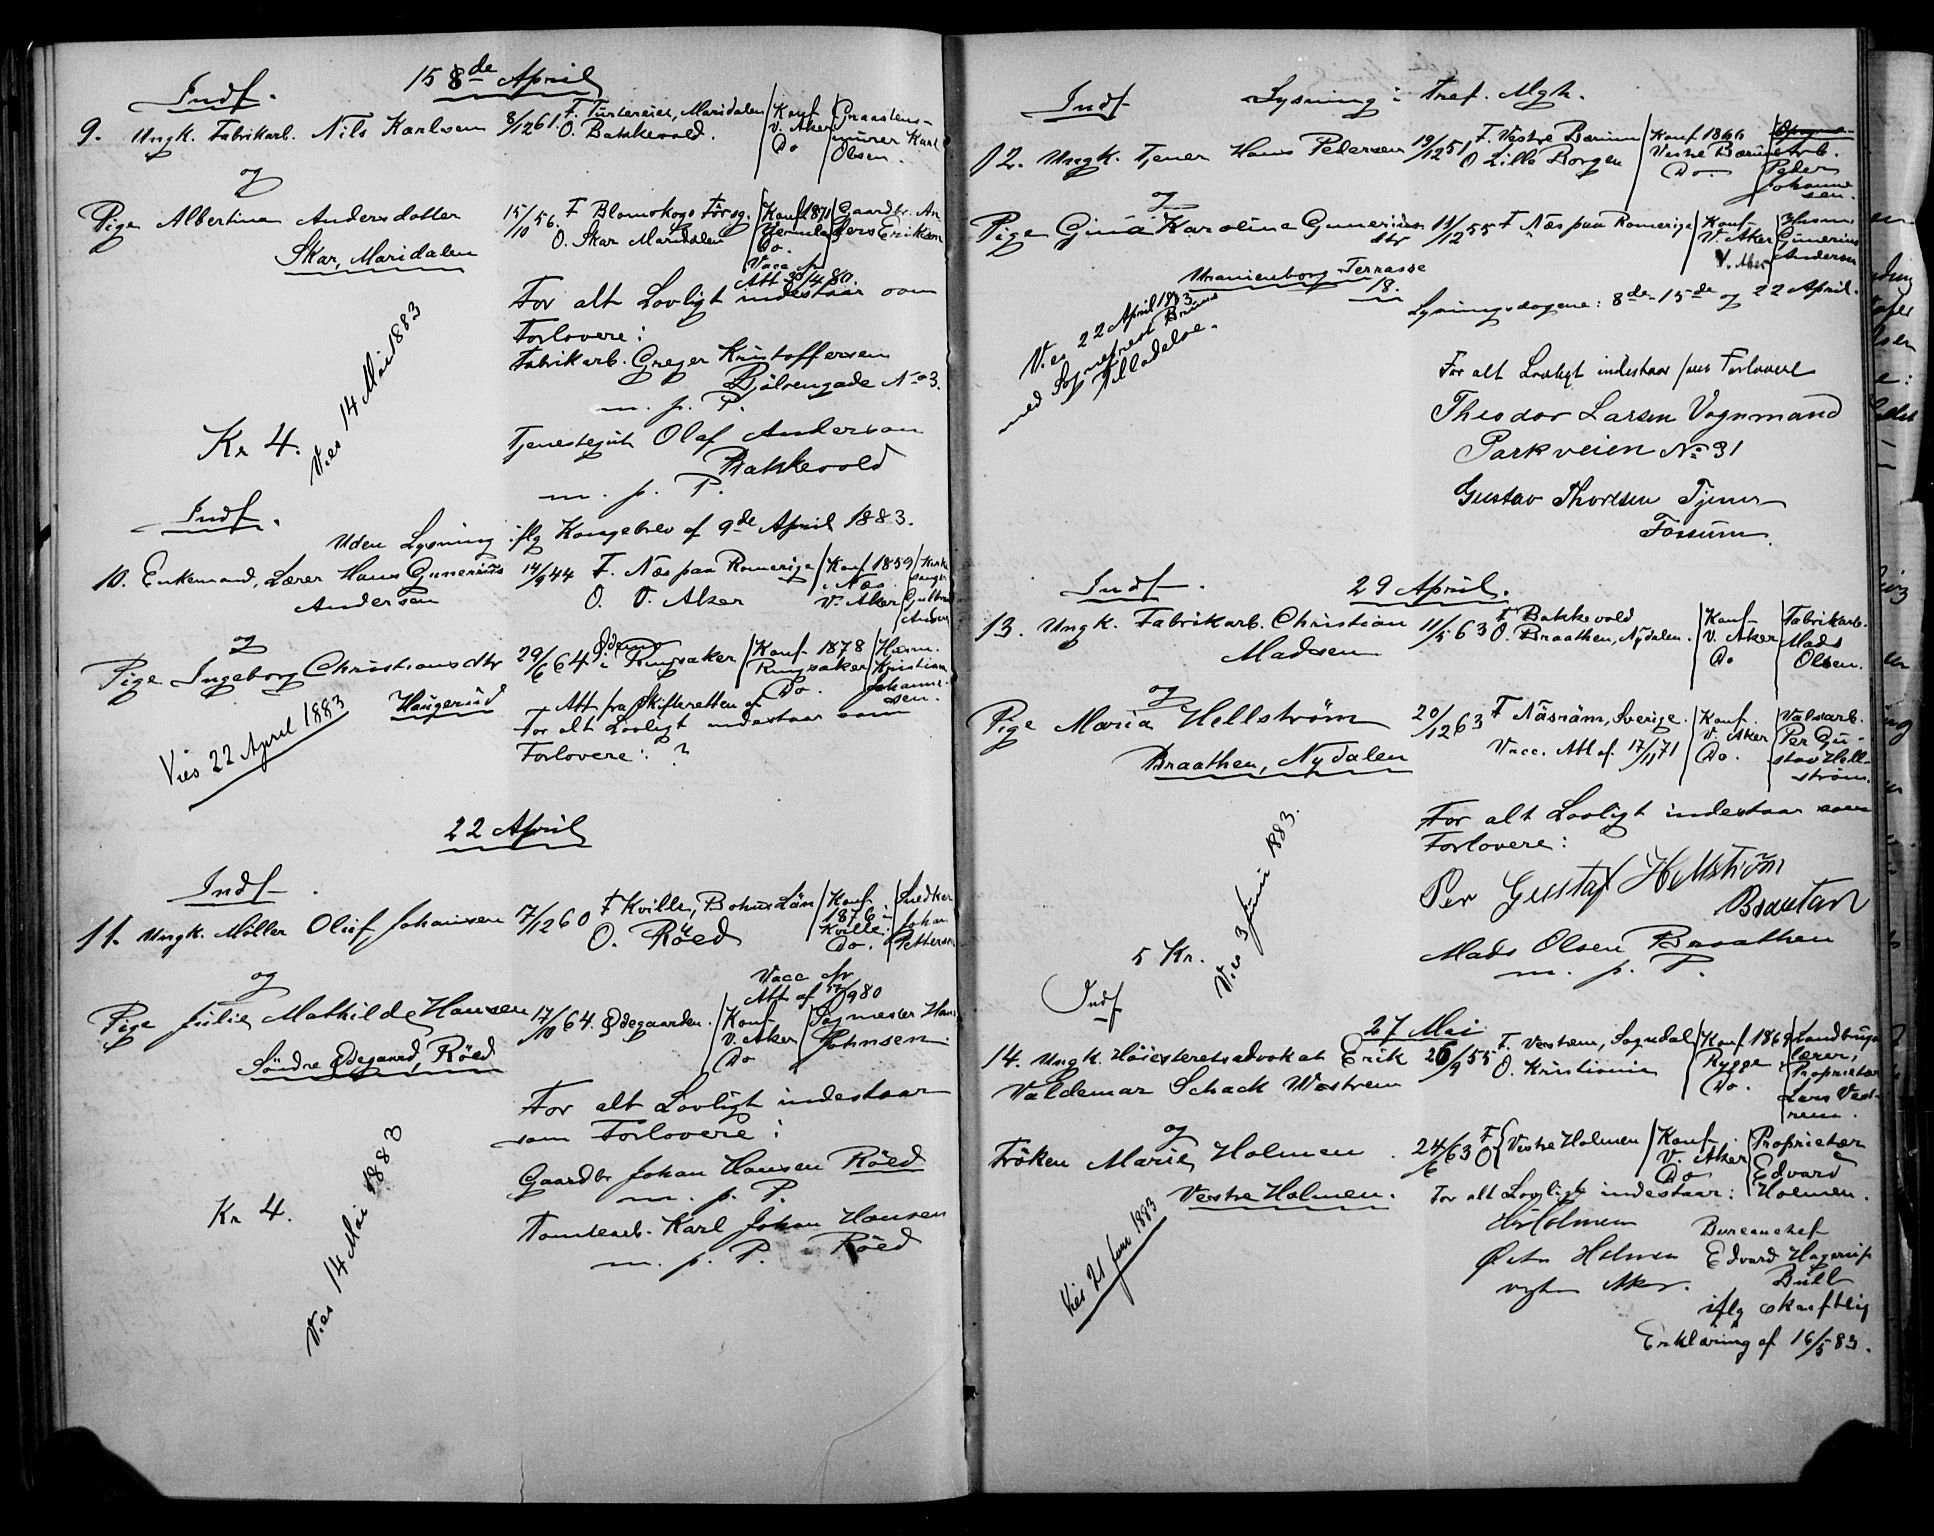 15 8de April
Indf.
9. Ungk. Fabrikarb. Nils Karlsen 8/12 61. F. Turtereier, Maridalen Konf V. Aker Do Graastens-
O. Bakkevold. murer Karl
Olsen.
og
Pige Albertina Andersdatter 15/10 56. F Blomskogs Försg. Konf 1871 Gaardbr. An
Skar, Maridalen O. Skar Maridalen Vermland Do. ders Erikson
Vacc fr
Att 30/4 80.
For alt Lovligt indestaar som
Forlovere:
Fabrikarb. Greger Kristoffersen
Bjölsengade No 3.
m. p. P.
Tjenestegut Olaf Anderson
Bakkevold
m. p. P.
Kr 4.
Vies 14 Mai 1883
Indf.
Uden Lysning iflg Kongebrev af 9de April 1883.
10. Enkemand, Lærer Hans Gunerius 14/9 44 F. Næs paa Romerige Konf 1859 Kirke
Andersen O. V. Aker i Næs. V. Aker sanger Gulbrand Anders
og
Pige Ingeborg Christiansdtr 29/6 64 Ödem i Ringsaker Konf 1878 Husm.
Haugerud Ringsaker Do. Kristian Johannesen.
Att fra Skifteretten af
For alt Lovligt indestaar som
Forlovere: ?
Vies 22 April 1883
22 April
Indf
11. Ungk. Möller Oluf Johansen 17/12 60 F Kville, Bohus Län Konf 1876 i Kville. Do. Snedker
O. Röed Johan
Petterson
og
Vacc fr
Att af 17/9 80
Pige Julie Mathilde Hansen 17/10 64. Ödegaarden. Konf V. Aker Do Sagmester Hans
Söndre Ödegaard, Röed Johnsen
For alt Lovligt indestaar
som Forlovere:
Gaardbr Johan Hansen Röed
m. p. P.
Tomtearb. Karl Johan Hansen
m. p. P. Röed
Kr 4.
Vies 14 Mai 1883
Indf Lysning i Tref. Mgh.
12. Ungk. Tjener Hans Pedersen 19/12 51 F. Vestre Bærum Konf 1866 Vestre Bærum Do Arb.
O Lille Borgen Peder
Johanne
sen.
og
Pige Gina Karoline Gunerius 11/12 55 F Næs paa Romerige Konf V. Aker V. Aker Husm
dtr Gunerius
Andersen
Uranienborg Terrasse
18.
Lysningsdagene: 8de 15de og 22 April.
Vies 22 April 1883
med Sognepræst Bruns
Tilladelse.
For alt Lovligt indestaar som Forlovere
Theodor Larsen Vognmand
Parkveien No 31
Gustav Thoresen Tjener
Fossum
Indf.
29 April.
13. Ungk. Fabrikarb. Christian 11/5 63 F Bakkevold Konf V. Aker Do Fabrikarb.
Madsen O. Braathen, Nydalen. Mads
Olsen.
og
Pige Maria Hellström 20/12 63 F Näsnäm, Sverige. Konf. V. Aker Do. Valsarb.
Braathen, Nydalen Vacc. Att af 17/11 71 Per Gu-
stav Hell-
ström.
For alt Lovligt indestaar som
Forlovere:
Per Gustaf Hellström
Braatan
Mads Olsen Braathen
m. p. P.
5 Kr.
Vies 3 Juni 1883.
Indf
27 Mai
14. Ungk. Höiesteretsadvokat Erik 26/9 55 F. Vestrem, Sogndal Konf. 1869 Rygge Do. Landbrugs
Valdemar Schack Westrem O. Kristiania lærer,
Proprietær
Lars Vest-
rem.
og
Fröken Marie Holmen. 24/6 63 F O Vestre Holmen Konf V. Aker Do Proprietær
Vestre Holmen. Edvard
Holmen.
For alt Lovligt indestaar:
Holmen Bureauchef
Holmen Edvard Hagerup
Aker. Bull
iflg skriftlig
Erklæring af 16/5 83.
Vies 21 Juni 1883